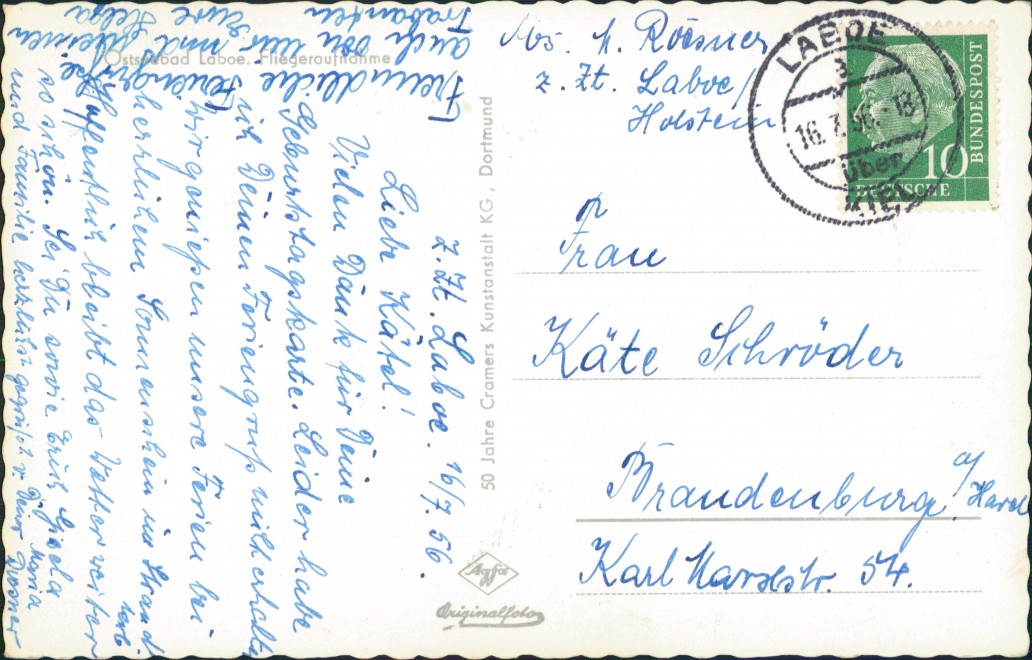 Ostseebad Laboe. Fliegeraufnahme
z. Zt. Laboe. 16/7. 56.
Liebe Kätel!
Vielen Dank für Deine
Geburtstagskarte. Leider habe
ich Deinen Feriengruß nicht erhalten
Wir genießen unsere Ferien bei
herrlichem Sonnenschein im Strand
korb.
Hoffentlich bleibt das Wetter weiter
so schön. Sei Du sowie Erich, Gisela
und Familie herzlichst gegrüßt v. Deiner
Maria
Freundliche Feriengrüße,
auch von mir und meinen
Trabanten Eure Helga
50 Jahre Cramers Kunstanstalt KG., Dortmund
Agfa
Originalfoto
Abs. M. Rössner
z. Zt. Laboe/
Holstein
LABOE
a
16.7.56.-18
über
KIEL
10
DEUTSCHE
BUNDESPOST
Frau
Käte Schröder
Brandenburg a/Havel
Karl Marxstr. 54.